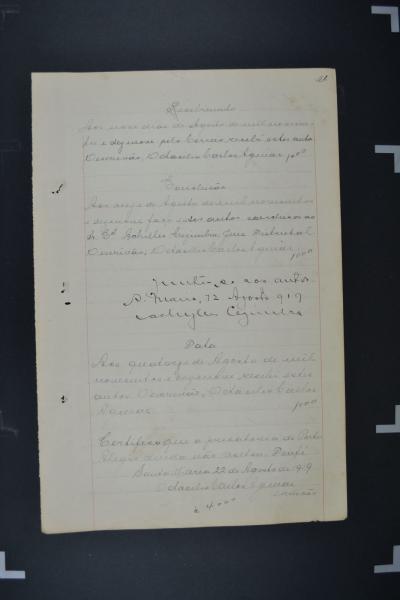 21
Recebimento
Aos nove dias de Agosto de mil novecen-
tos e dezenove pelo Correio recebi estes autos
O escrivão, Octacilio Carlos Aguiar 1000
Conclusão
Aos onze de Agosto de mil novecentos
e dezenove faço estes autos conclusos ao
Dr. Juiz Districtal
O escrivão, Octacilio Carlos Aguiar
1000
Junte-se aos autos.
S. Maria, 12 Agosto 919
Data
Aos quatorze de Agosto de mil
novecentos e dezenove recebi estes
autos O escrivão, Octacilio Carlos
Aguiar
1000
Certifico que a precatoria de Porto
Alegre ainda não voltou. Doufé
Santa Maria 22 de Agosto de 919
Octacilio Carlos Aguiar
escrivão
4000